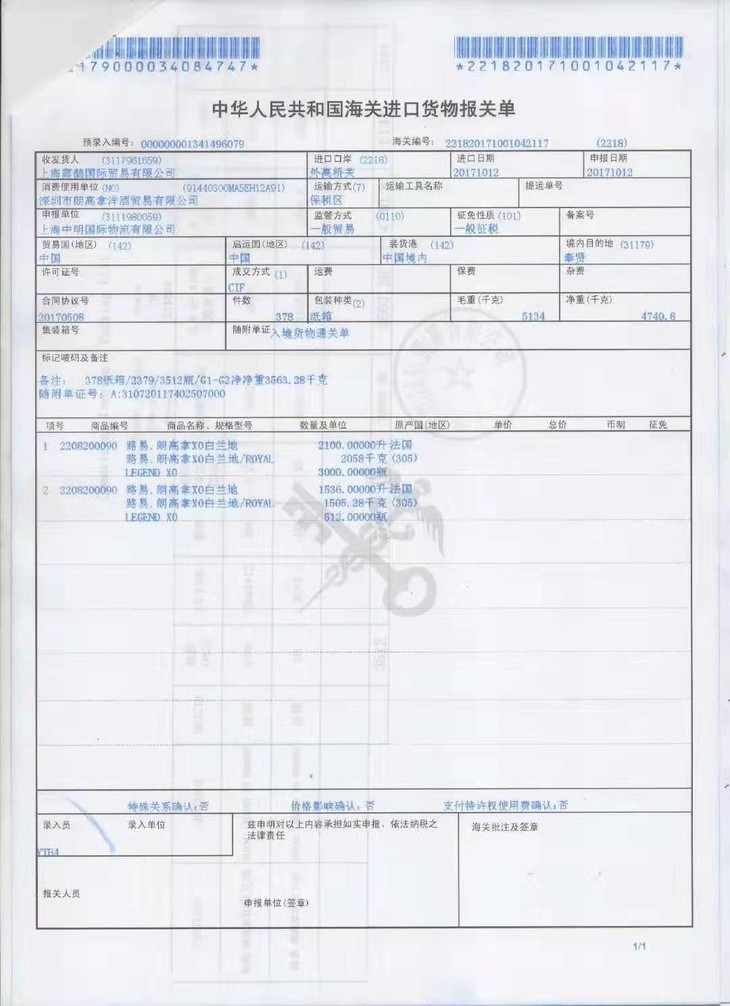 179000034084747*
*221820171001042117*
中华人民共和国海关进口货物报关单
预录入编号: 000000001341496079 海关编号: 221820171001042117 (2218)
收发货人 (3117961659) 进口口岸 (2218) 进口日期 申报日期
国际贸易有限公司 外高桥关 20171012 20171012
消费使用单位 (NO) (91440300MA5EH12A91) 运输方式(7) 运输工具名称 提运单号
深圳市朗高拿洋酒贸易有限公司 保税区
申报单位 (3111980059) 监管方式 (0110) 征免性质 (101) 备案号
上海中明国际物流有限公司 一般贸易 一般征税
贸易国(地区) (142) 启运国(地区) (142) 装货港 (142) 境内目的地 (31179)
中国 中国 中国境内 奉贤
许可证号 成交方式 (1) 运费 保费 杂费
CIF
合同协议号 件数 包装种类(2) 毛重(千克) 净重(千克)
20170508 378 纸箱 5134 4740.6
集装箱号 随附单证 入境货物通关单
标记唛码及备注
备注: 378纸箱/2379/3512瓶/G1-G2净净重3563.28千克
随附单证号: A:310720117402507000
项号 商品编号 商品名称、规格型号 数量及单位 原产国(地区) 单价 总价 币制 征免
1 2208200090 路易.朗高拿XO白兰地 2100.00000升 法国
路易.朗高拿XO白兰地/ROYAL 2058千克 (305)
LEGEND XO 3000.00000瓶
2 2208200090 路易.朗高拿XO白兰地 1536.00000升 法国
路易.朗高拿XO白兰地/ROYAL 1505.28千克 (305)
LEGEND XO 512.00000瓶
特殊关系确认:否 价格影响确认:否 支付特许权使用费确认:否
录入员 录入单位 兹申明对以上内容承担如实申报、依法纳税之 海关批注及签章
法律责任
报关人员
申报单位(签章)
1/1